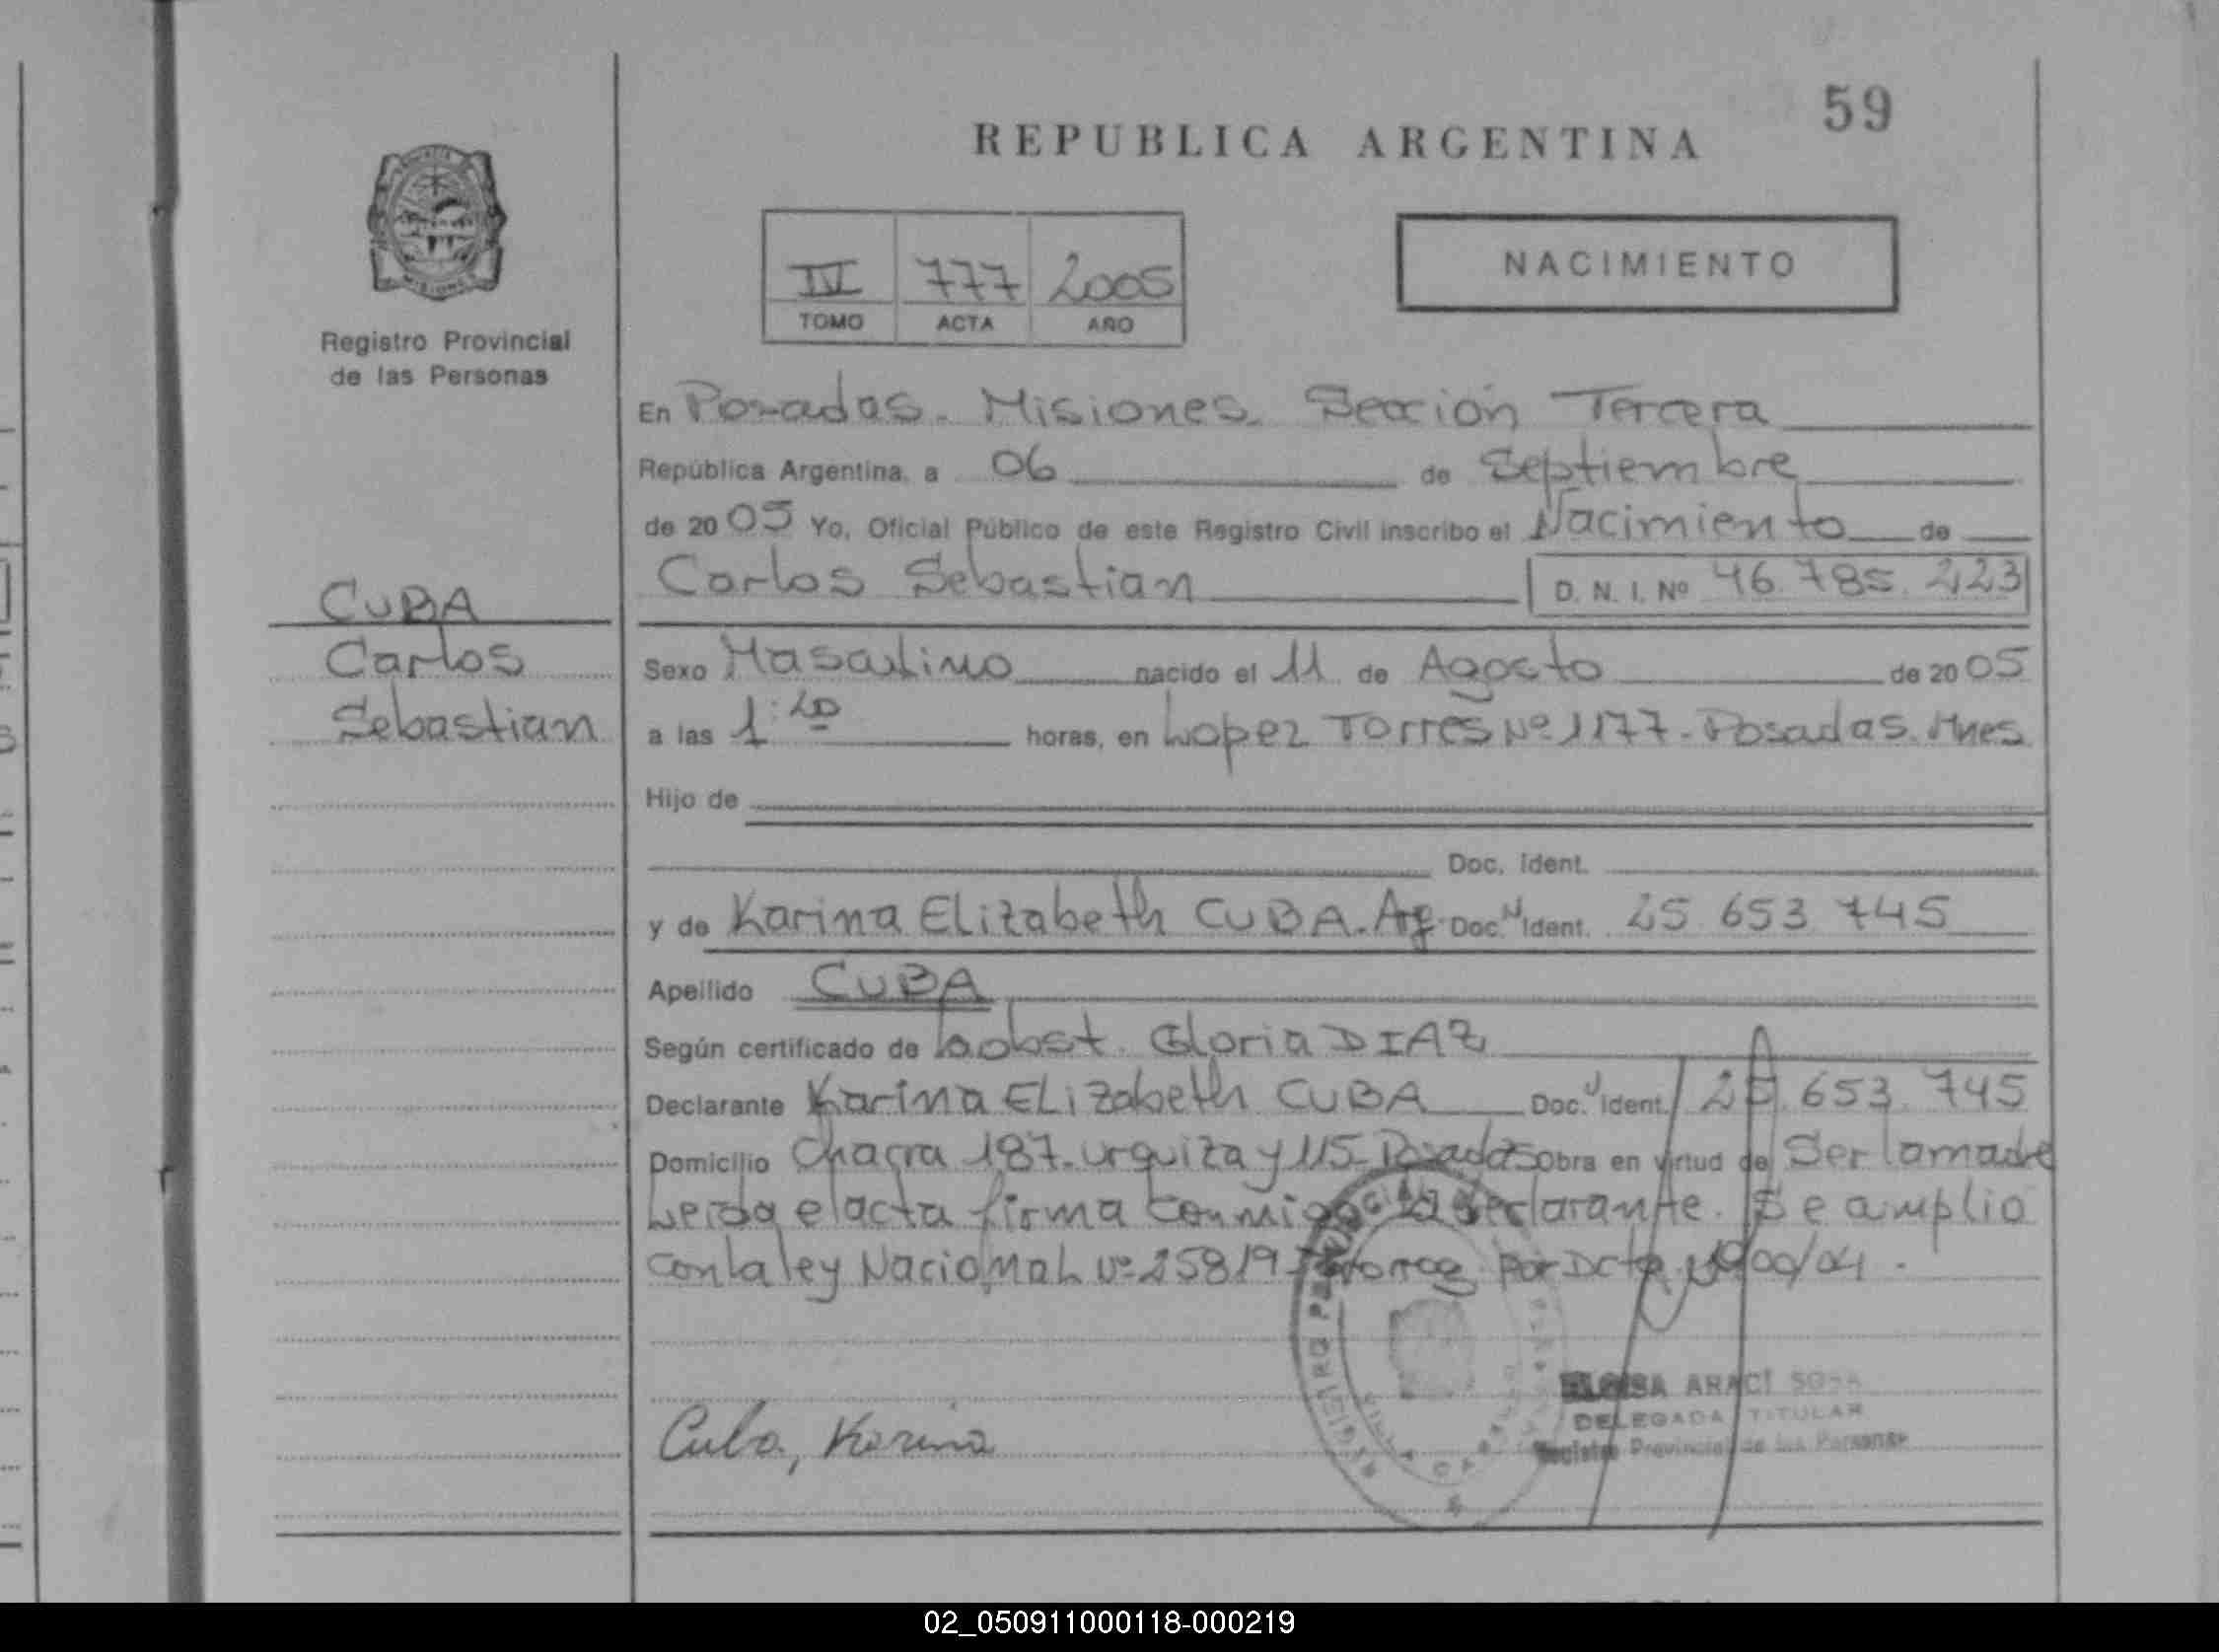 59
REPUBLICA ARGENTINA
NACIMIENTO
IV 777 2005
TOMO ACTA AÑO
Registro Provincial
de las Personas
CUBA
Carlos
Sebastian
En Posadas. Misiones. Sección Tercera
República Argentina, a 06 de Septiembre
de 2005 Yo, Oficial Público de este Registro Civil inscribo el Nacimiento de
Carlos Sebastian D. N. I. Nº 46.785.223
Sexo Masculino nacido el 11 de Agosto de 2005
a las 1:20 horas, en Lopez Torres Nº 1177. Posadas. Mnes
Hijo de
Doc. Ident.
y de Karina Elizabeth CUBA. Arg. Doc. Ident. 25 653 745
Apellido CUBA
Según certificado de la obst. Gloria DIAZ
Declarante Karina Elizabeth CUBA Doc. Ident. 25.653.745
Domicilio Chacra 187. Urquiza y 115 Posadas Obra en virtud de Ser la madre
Leida el acta firma conmigo la declarante. Se amplio
con la ley Nacional Nº 25819 por Dcto
Cuba, Karina
ELOISA ARACI SOSA
DELEGADA TITULAR
Registro Provincial de las Personas
02_050911000118-000219